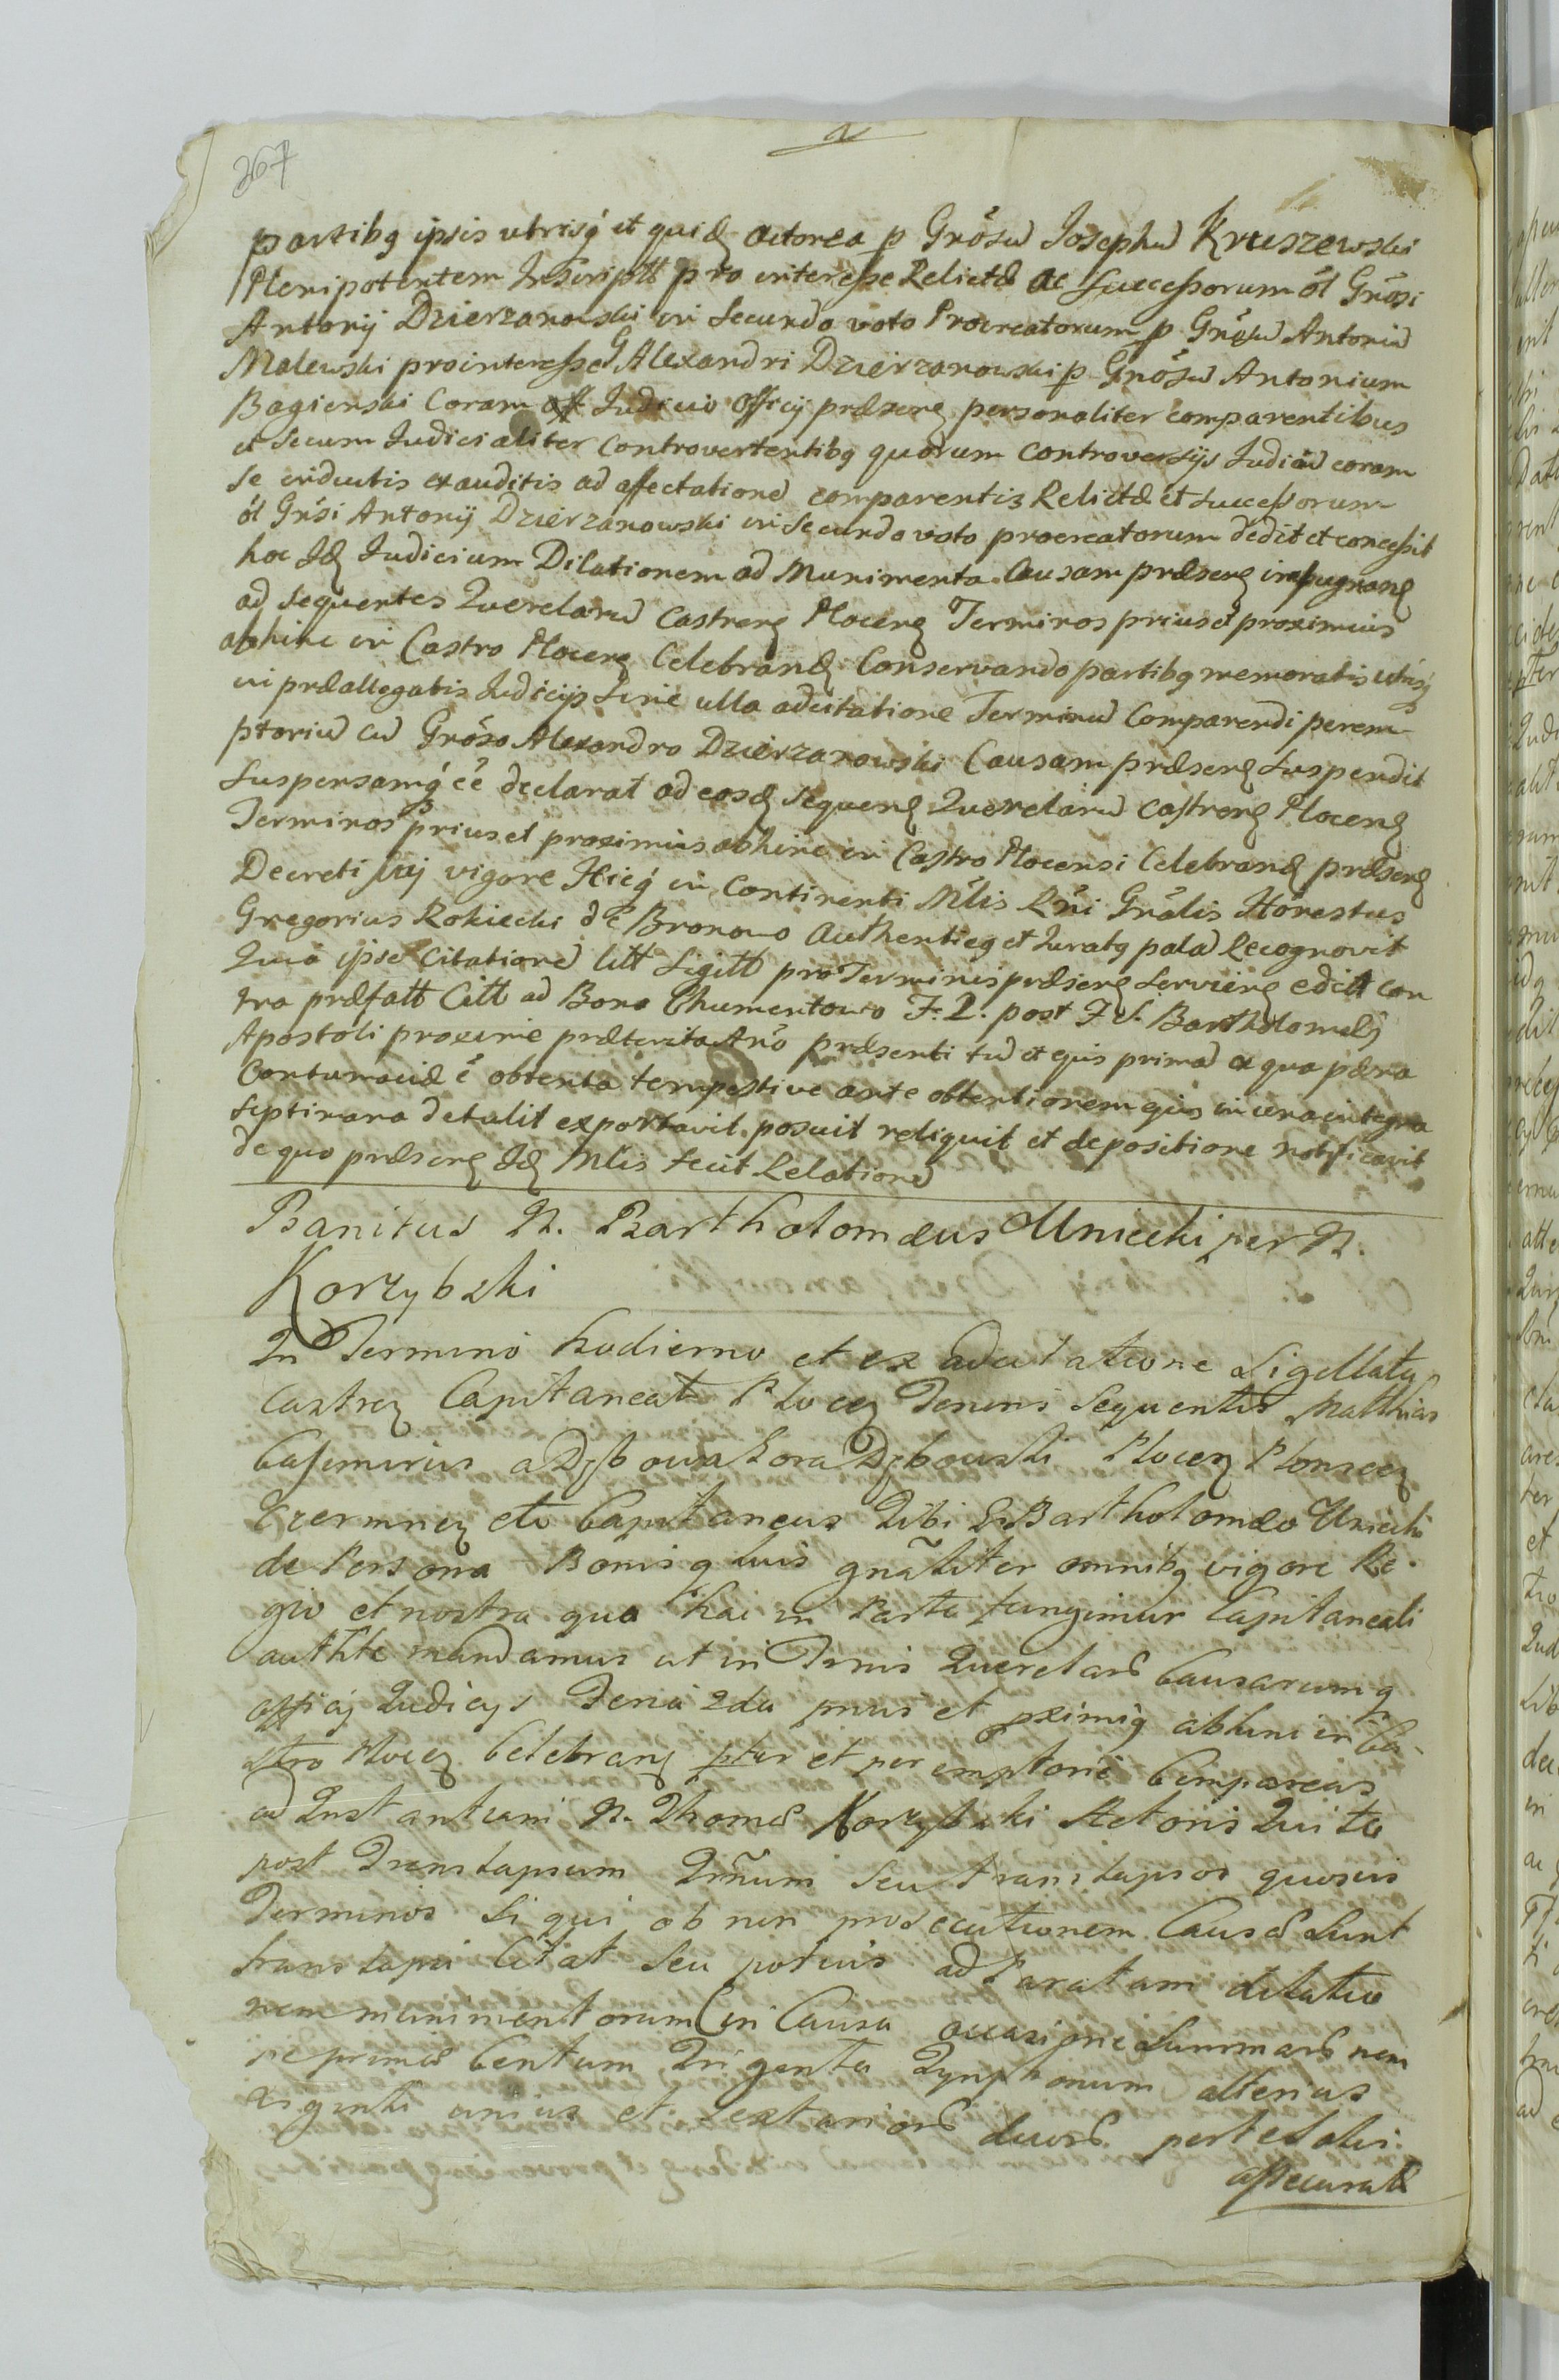 367
partibq ipsis utrisq́ et quidē actorea p Grősū Josephū Kruszewski
Plenipotentem Inscriptt pro interesse Relictæ ac Successorum ől Grősi
Antonij Dzierzanowski in Secundo voto Procreatorum p Grősū Antoniū
Malewski prointeresse G Alexandri Dzierzanowski p Grősū Antonium
Bagienski Coram Judicio Officij præsenʒ personaliter comparentibus
et Secum Judicialiter Controvertentibq quorum Controversijs Judiciū coram
Se inductis exauditis ad affectationē comparentis Relictæ et Successorum
ől Grősi Antonij Dzierzanowski in Secundo voto procreatorum dedit et concessit
hoc Idʒ Judicium Dilationem ad Munimenta Causam præsenʒ impugnanʒ
ad Sequentes Querelarū Castrenʒ Plocenʒ Terminos prius et proximius
abhinc in Castro Plocenʒ Celebranʒ Conservando partibq memoratis utrisq́
in præallegatis Judicijs Sine ulla adcitatione Terminū Comparendi perem
ptoriū cū Grőso Alexandro Dzierzanowski Causam præsenʒ Suspendit
Suspensamq́ ée declarat ad eosdʒ Sequenʒ Querelarū castrenʒ Plocenʒ
Terminos prius et proximius abhinc in Castro Plocensi Celebranʒ præsenʒ
Decreti sui vigore Hicq́ in Continenti Mlis Rni Grális Honestus
Gregorius Rokiecki de Bronowo Authenticq et Juratq palā Recognovit
Quia ipse Citationē litt Sigitt pro Terminis præsenʒ Servienʒ edict con
tra præfatt Citt ad Bona Chumentowo F. 2. post F. S. Bartholomæi
Apostoli proxime præterita Anő præsenti tū et ejus primā ex qua pæna
Contumaciæ é obtenta tempestive ante obtentionem ejus in una integra
Septimana detulit exportavit posuit reliquit et depositione notificavit
de quo præsenʒ Idʒ Mlis fecit Relationē
Banitus N. Bartholomæus Uniecki per N.
Korzybski
In Termino hodierno et ex adcitatione Sigillatu
Castrenʒ Capitaneatt Plocenʒ Tenoris Sequentis Matthias
Casimirius a Dębowa Gora Dębowski Plocenʒ Plonscenʒ
etc Capitaneus Tibi G Bartholomæo Uniecki
de Persona Bonisq tuis gnāliter omnibq vigore Re
gio et nostra qua hac in Parte fungimur Capitaneali
autthte mandamus ut in Tnis Querelarū Causarumq
officij Judicijs Feria 2da prius et pximiq abhinc in Ca
stro Plocenʒ Celebranʒ ptər et peremptorie Compareas
ad Instantiam N. Thomæ Korzybski Actoris Qui te
post Translapsum Tmnum Seu translapsos quosvis
Terminos Si qui ob non prosecutionem Causæ Sunt
translapsi Citat Seu potius ad Paratam dilatio
nem munimentorum in Causa occasione Summarū nem
pe primæ Centum Triginta Tynphonum alterius
Viginti unius et Sextariorū duorū per te Solvi
assecuratt